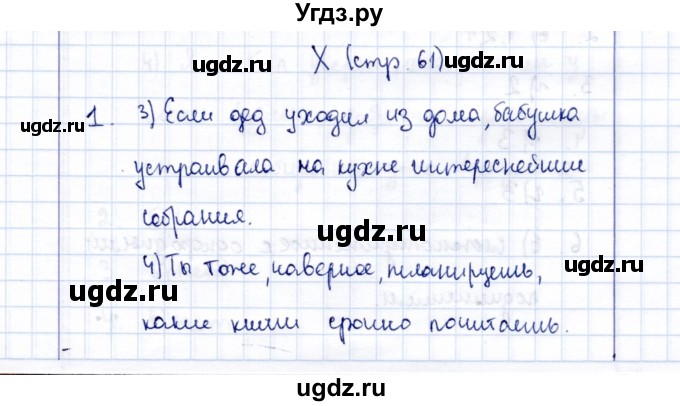 Угдз.ру
X (стр. 61)
ugdz.ru ugdz.ru
ugdz.ru
1. 3) Если дед уходил из дома, бабушка
устраивала на кухне интереснейшие
собрания.
ugdz.ru
4) Ты тоже, наверное, планируешь,
ugdz.ru
ugdz.ru
какие книги срочно почитаешь.
ugdz.ru